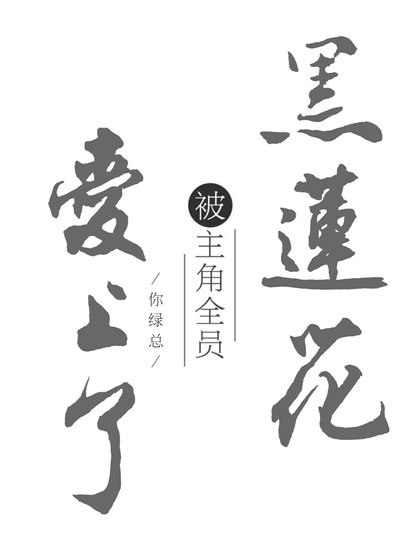 黑蓮花
被主角全员
/你绿总/
愛上了